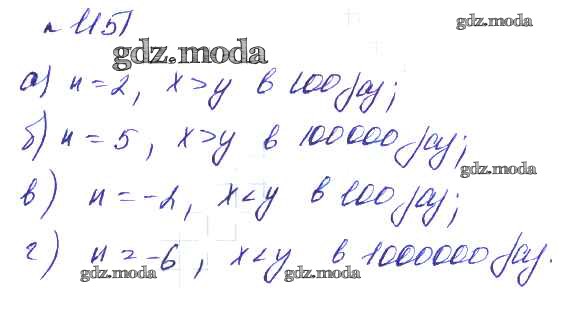 № 1151
gdz.moda
а) n = 2, x > y в 100 раз;
б) n = 5, x > y в 100000 раз;
gdz.moda
в) n = -2, x < y в 100 раз;
г) n = -6, x < y в 1000000 раз.
gdz.moda gdz.moda